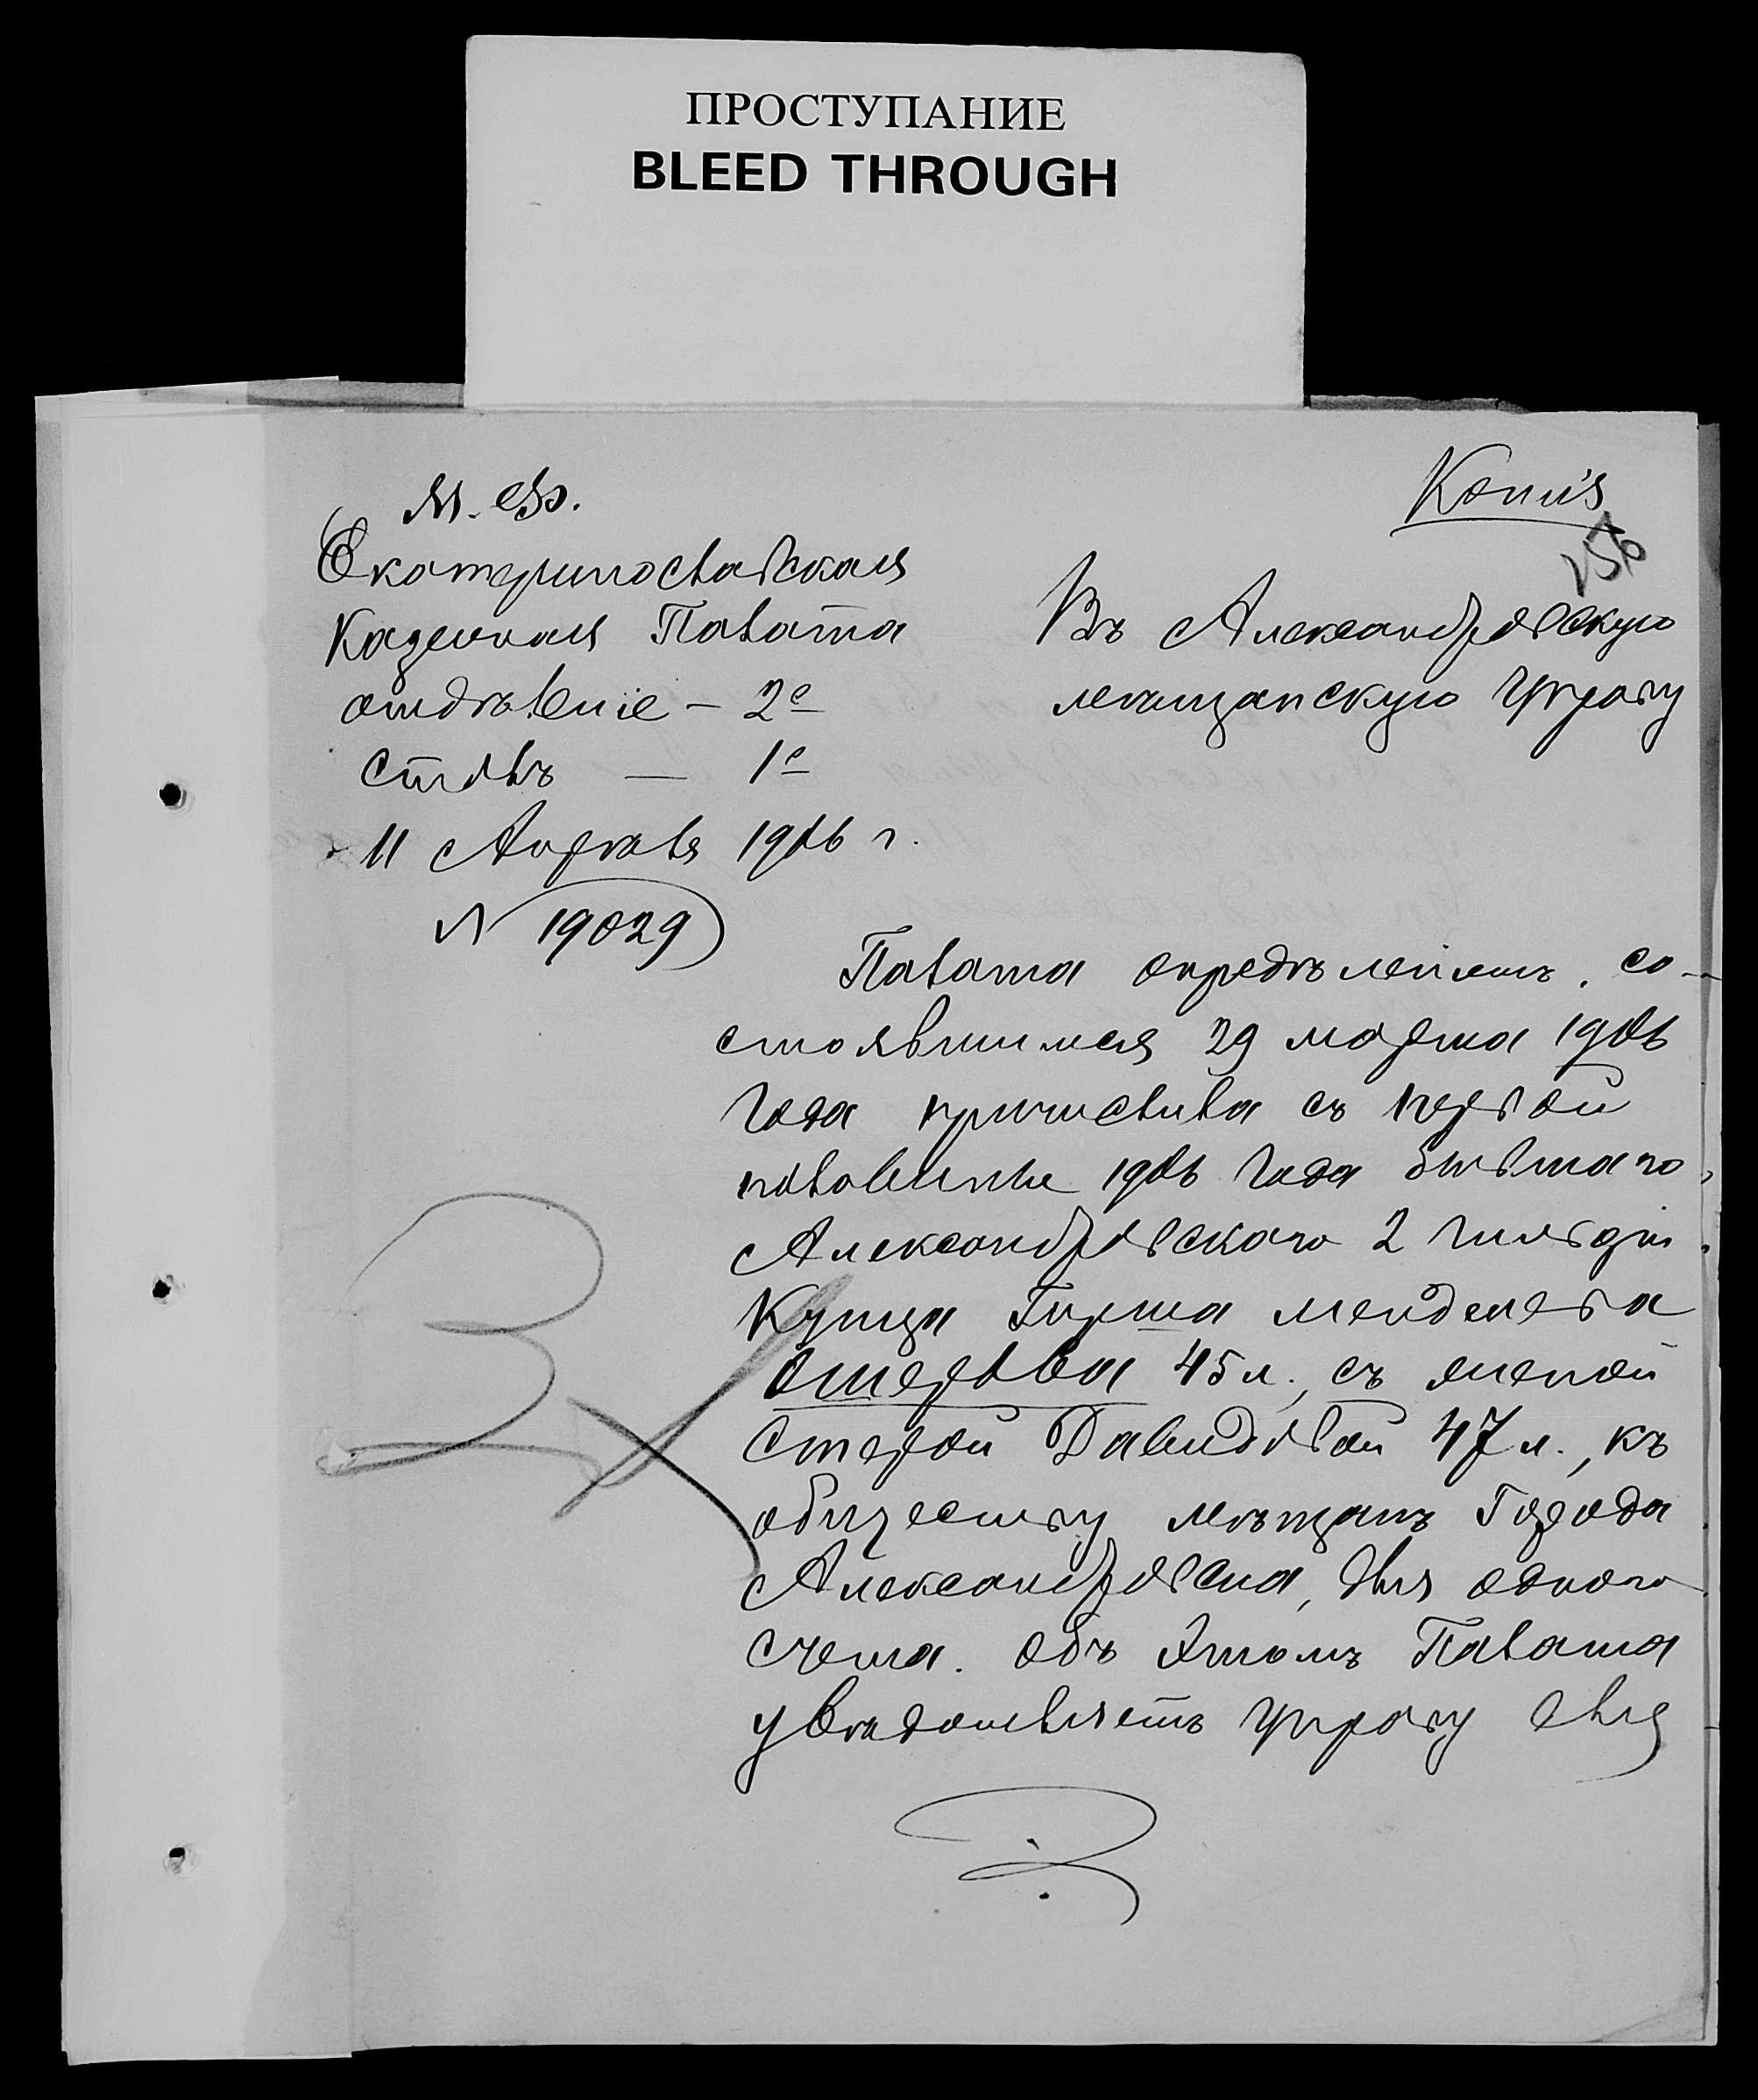 ПРОСТУПАНИЕ
BLEED THROUGH
Копія
256
М. Ф.
Екатеринославская
Казенная Палата
отдѣленіе – 2е
Столъ — 1е
11 Апрѣля 1906 г.
№ 19029
Въ Александровскую
мещанскую Управу
Палата опредѣленіемъ, со-
стоявшимся 29 марта 1906
года причислила съ первой
половины 1906 года бывшаго
Александровскаго 2 гильдіи
Купца Гирша Менделева
Ошерова 45 л., съ женой
Стерой Давидовой 47 л., къ
обществу мѣщанъ Города
Александровска, для одного
счета. Объ этомъ Палата
увѣдомляетъ Управу для